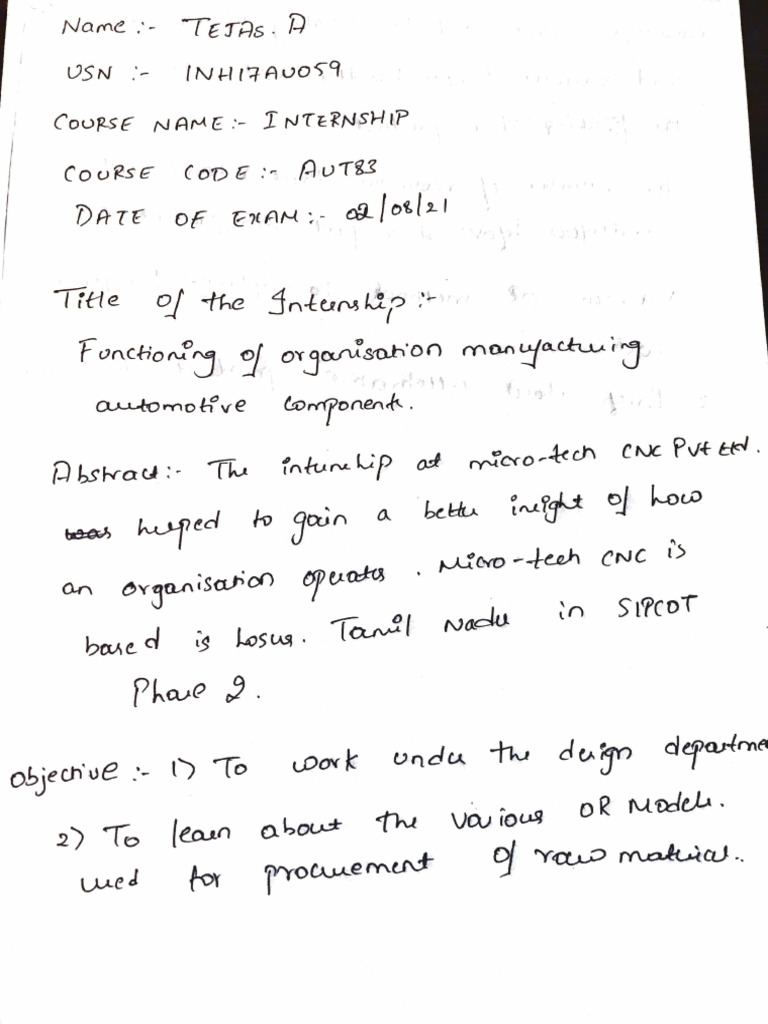 Name :- TEJAS. A
USN :- 1NH17AU059
COURSE NAME:- INTERNSHIP
COURSE CODE :- AUT83
DATE OF EXAM :- 02/08/21
Title of the Internship :-
Functioning of organisation manufacturing
automotive components.
Abstract:- The internship at micro-tech CNC Pvt Ltd.
was helped to gain a better insight of how
an organisation operates. Micro-tech CNC is
based is Hosur. Tamil Nadu in SIPCOT
Phase 2.
Objective :- 1) To work under the design departme
2) To learn about the various OR Models.
used for procurement of raw material..